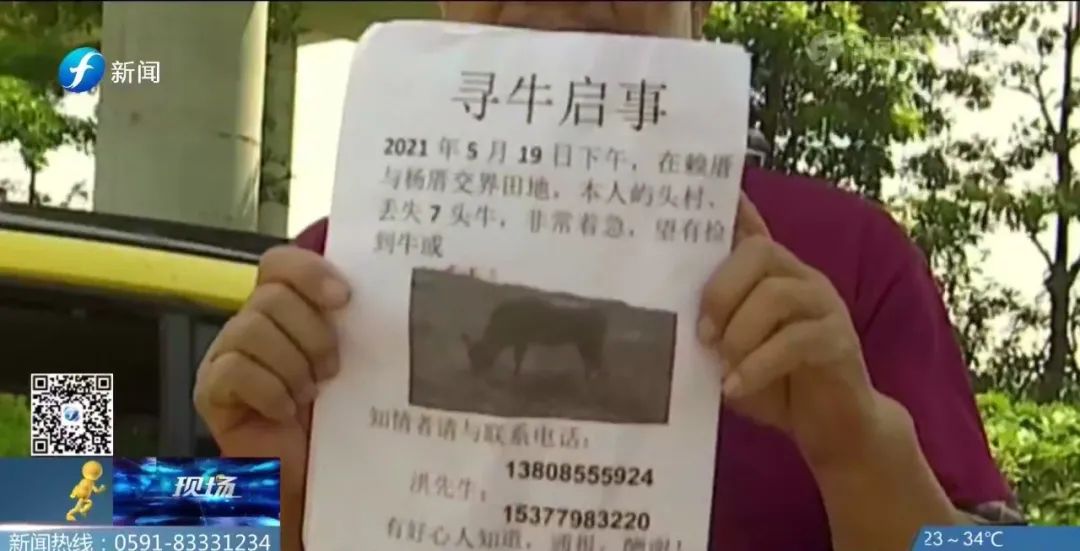 新闻
寻牛启事
2021 年 5 月 19 日下午，在赖厝
与杨厝交界田地，本人的头村、
丢失 7 头牛，非常着急，望有捡
到牛或
知情者请与联系电话：
13808555924
洪先生：
15377983220
有好心人知道，通报，酬谢！
现场
新闻热线：0591-83331234
23～34℃